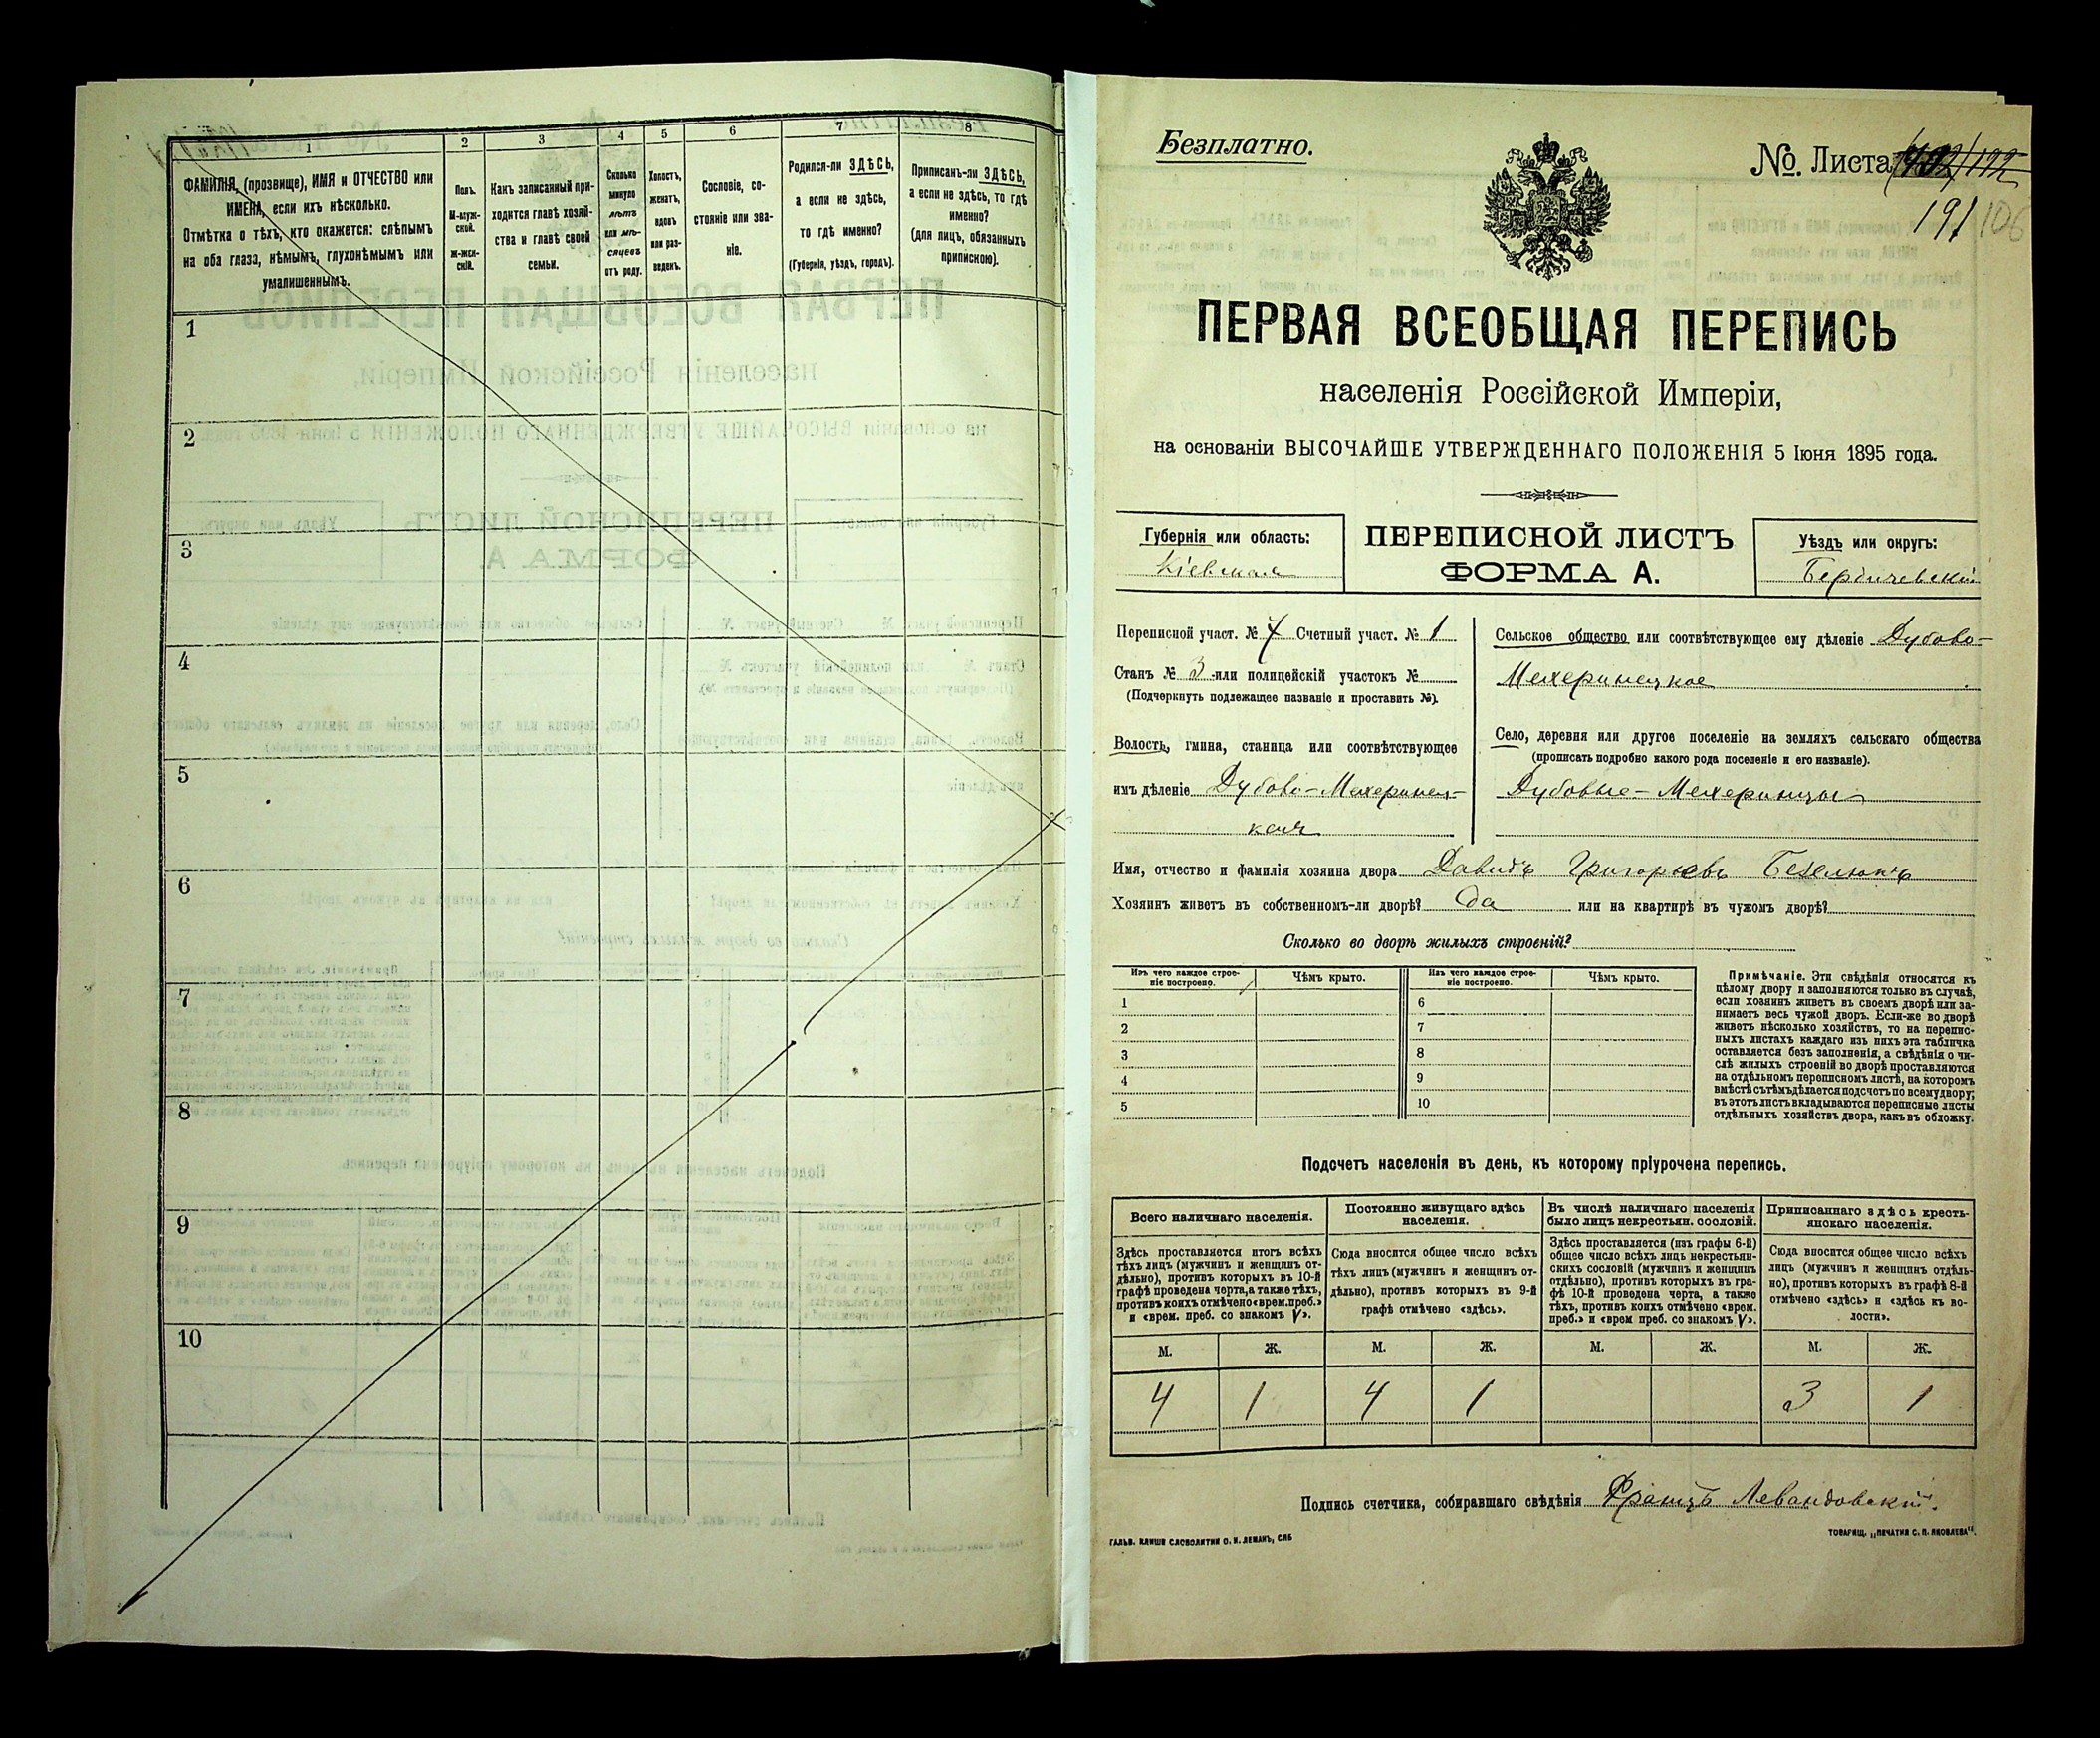 1
ФАМИЛІЯ, (прозвище), ИМЯ и ОТЧЕСТВО или
ИМЕНА, если ихъ нѣсколько.
Отмѣтка о тѣхъ, кто окажется: слѣпымъ
на оба глаза, нѣмымъ, глухонѣмымъ или
умалишеннымъ.
2
Полъ.
М-муж-
ской.
Ж-жен-
скій.
3
Какъ записанный при-
ходится главѣ хозяй-
ства и главѣ своей
семьи.
4
Сколько
минуло
лѣтъ
или мѣ-
сяцевъ
отъ роду.
5
Холостъ,
женатъ,
вдовъ
или раз-
веденъ.
6
Сословіе, со-
стояніе или зва-
ніе.
7
Родился-ли ЗДѢСЬ,
а если не здѣсь,
то гдѣ именно?
(Губернія, уѣздъ, городъ).
8
Приписанъ-ли ЗДѢСЬ,
а если не здѣсь, то гдѣ
именно?
(для лицъ, обязанныхъ
припискою).
1
2
3
4
5
6
7
8
9
10
Безплатно.
№. Листа 192
191 106
ПЕРВАЯ ВСЕОБЩАЯ ПЕРЕПИСЬ
населенія Россійской Имперіи,
на основаніи ВЫСОЧАЙШЕ УТВЕРЖДЕННАГО ПОЛОЖЕНІЯ 5 Іюня 1895 года.
Губернія или область:
Кіевская
ПЕРЕПИСНОЙ ЛИСТЪ
ФОРМА А.
Уѣздъ или округъ:
Бердичевскій
Переписной участ. № 7 Счетный участ. № 1
Станъ № 3 или полицейскій участокъ №
(Подчеркнуть подлежащее названіе и проставить №).
Волость, гмина, станица или соотвѣтствующее
имъ дѣленіе Дубово-Мехеринец-
кая
Сельское общество или соотвѣтствующее ему дѣленіе Дубово-
Мехеринецкое
Село, деревня или другое поселеніе на земляхъ сельскаго общества
(прописать подробно какого рода поселеніе и его названіе).
Дубовые-Мехеринцы
Имя, отчество и фамилія хозяина двора Давидъ Григорьевъ
Хозяинъ живетъ въ собственномъ-ли дворѣ? да или на квартирѣ въ чужомъ дворѣ?
Сколько во дворѣ жилыхъ строеній?
Изъ чего каждое строе-
ніе построено.
Чѣмъ крыто.
Изъ чего каждое строе-
ніе построено.
Чѣмъ крыто.
1 6
2 7
3 8
4 9
5 10
Примѣчаніе. Эти свѣдѣнія относятся къ
цѣлому двору и заполняются только въ случаѣ,
если хозяинъ живетъ въ своемъ дворѣ или за-
нимаетъ весь чужой дворъ. Если-же во дворѣ
живетъ нѣсколько хозяйствъ, то на перепис-
ныхъ листахъ каждаго изъ нихъ эта табличка
оставляется безъ заполненія, а свѣдѣнія о чи-
слѣ жилыхъ строеній во дворѣ проставляются
на отдѣльномъ переписномъ листѣ, на которомъ
вмѣстѣ съ тѣмъ дѣлается подсчетъ по всему двору;
въ этотъ листъ вкладываются переписные листы
отдѣльныхъ хозяйствъ двора, какъ въ обложку.
Подсчетъ населенія въ день, къ которому пріурочена перепись.
Всего наличнаго населенія.
Здѣсь проставляется итогъ всѣхъ
тѣхъ лицъ (мужчинъ и женщинъ от-
дѣльно), противъ которыхъ въ 10-й
графѣ проведена черта, а также тѣхъ,
противъ коихъ отмѣчено «врем. преб.»
и «врем. преб. со знакомъ V».
Постоянно живущаго здѣсь
населенія.
Сюда вносится общее число всѣхъ
тѣхъ лицъ (мужчинъ и женщинъ от-
дѣльно), противъ которыхъ въ 9-й
графѣ отмѣчено «здѣсь».
Въ числѣ наличнаго населенія
было лицъ некрестьян. сословій.
Здѣсь проставляется (изъ графы 6-й)
общее число всѣхъ лицъ некрестьян-
скихъ сословій (мужчинъ и женщинъ
отдѣльно), противъ которыхъ въ гра-
фѣ 10-й проведена черта, а также
тѣхъ, противъ коихъ отмѣчено «врем.
преб.» и «врем преб. со знакомъ V».
Приписаннаго здѣсь кресть-
янскаго населенія.
Сюда вносится общее число всѣхъ
лицъ (мужчинъ и женщинъ отдѣль-
но), противъ которыхъ въ графѣ 8-й
отмѣчено «здѣсь» и «здѣсь къ во-
лости».
М. Ж. М. Ж. М. Ж. М. Ж.
4 1 4 1 3 1
Подпись счетчика, собиравшаго свѣдѣнія Францъ Левандовскій.
ГАЛЬВ. КЛИШЕ СЛОВОЛИТНИ О. И. ЛЕМАНЪ, СПБ
ТОВАРИЩ. „ПЕЧАТНЯ С. П. ЯКОВЛЕВА".